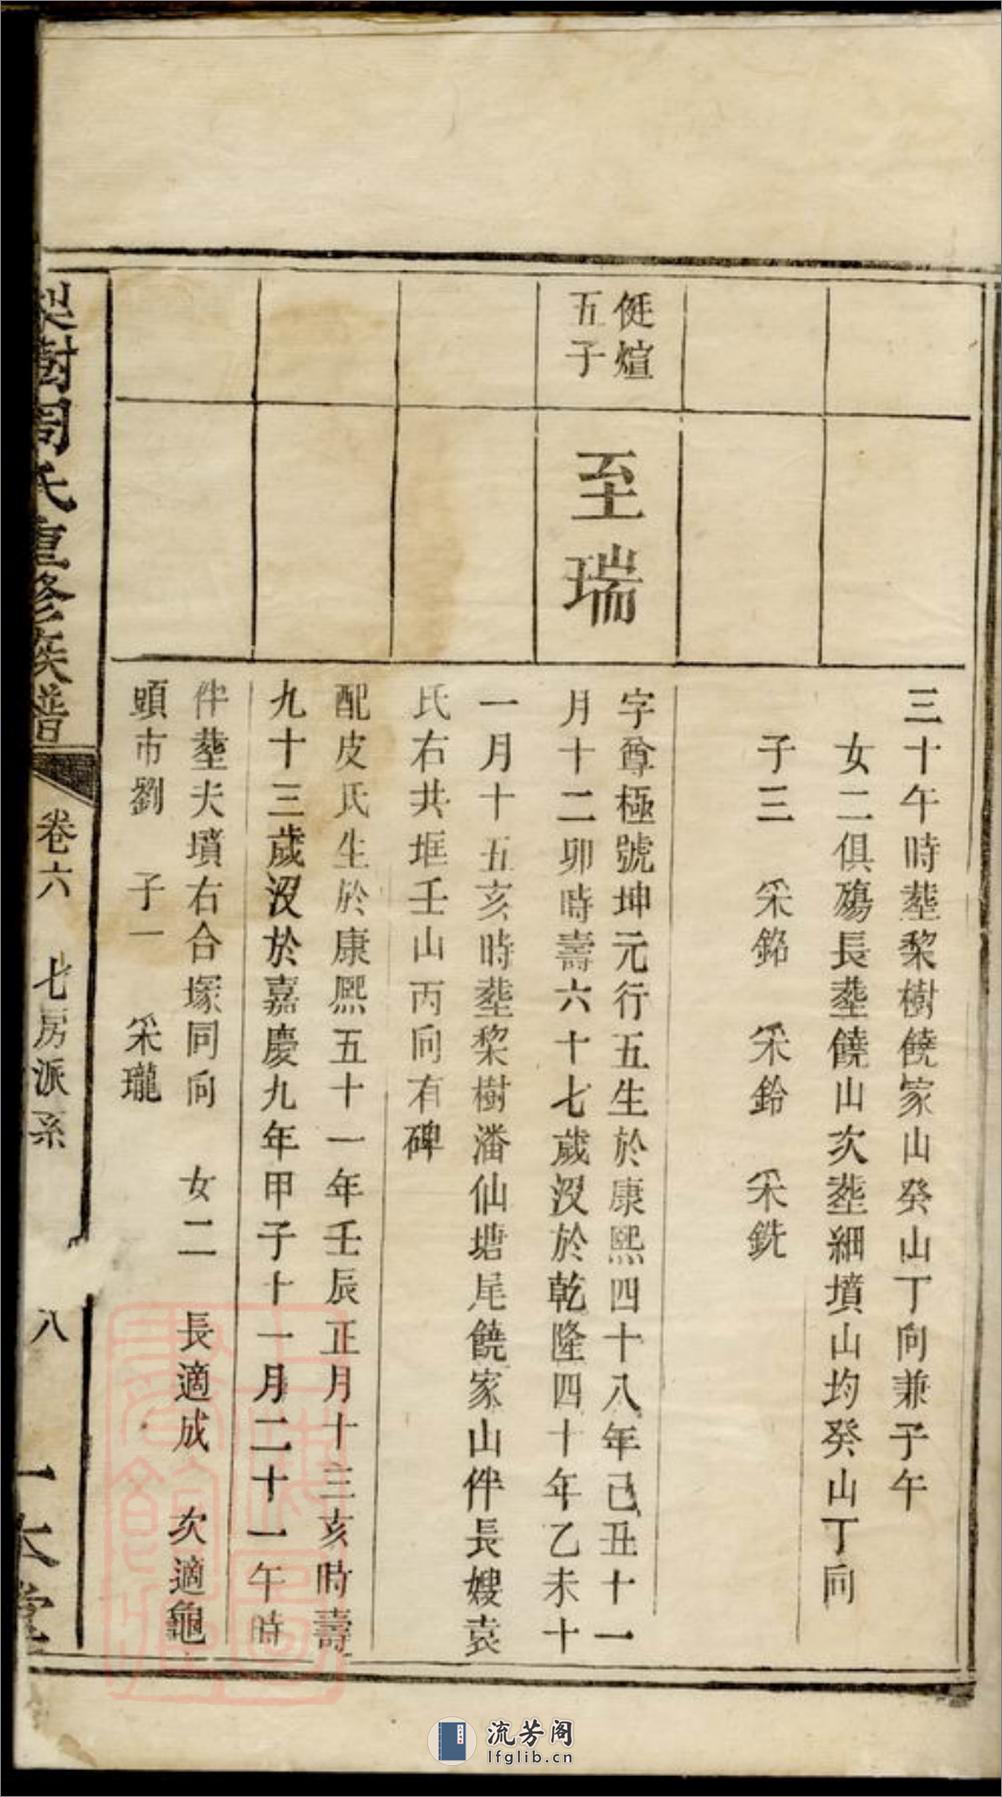 三十午時塟黎樹饒家山癸山丁向兼子午
女二俱殤長塟饒山次塟細墳山均癸山丁向
子三　采銘　采鈴　采銑
侹煊
五子
至瑞
字尊極號坤元行五生於康熙四十八年己丑十一
月十二卯時壽六十七歲沒於乾隆四十年乙未十
一月十五亥時塟棃樹潘仙塘尾饒家山伴長嫂袁
氏右共堆壬山丙向有碑
配皮氏生於康熙五十一年壬辰正月十三亥時壽
九十三歲沒於嘉慶九年甲子十一月二十一午時
伴塟夫墳右合塚同向　女二　長適成　次適龜
頭市劉　子一　采瓏
棃樹周氏重修族譜
卷六　七房派系
八
一本堂
流芳阁
lfglib.cn